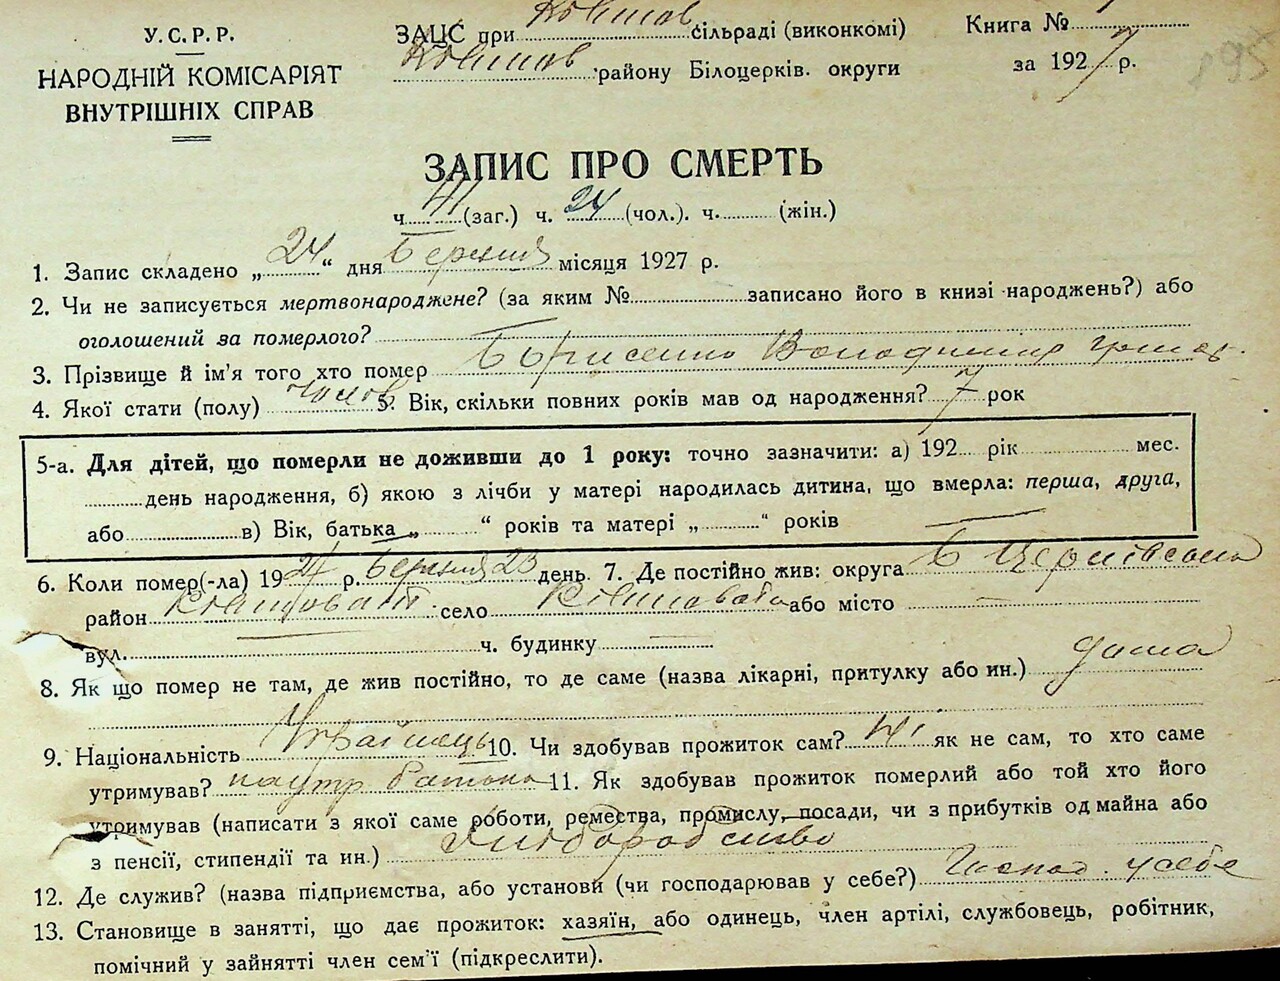 У.С.Р.Р.
НАРОДНІЙ КОМІСАРІЯТ
ВНУТРІШНІХ СПРАВ
ЗАЦС при Ковшов сільраді (виконкомі)
Ковшов району Білоцерків. округи
Книга №
за 1927 р.
195
ЗАПИС ПРО СМЕРТЬ
ч. 41 (заг.) ч. 24 (чол.). ч. (жін.)
1. Запис складено „24“ дня Березня місяця 1927 р.
2. Чи не записується мертвонароджене? (за яким № записано його в книзі народжень?) або
оголошений за померлого?
3. Прізвище й ім'я того хто помер Борисенко Володимир
4. Якої статі (полу) чолов 5. Вік, скільки повних років мав од народження? 7 рок
5-а. Для дітей, що померли не доживши до 1 року: точно зазначити: а) 192 рік мес.
день народження, б) якою з лічби у матері народилась дитина, що вмерла: перша, друга,
або в) Вік, батька „ “ років та матері „ “ років
6. Коли помер(-ла) 1927 р. Березня 23 день. 7. Де постійно жив: округа Б Церківська
район Ковшоват село Ковшовата або місто
вул. ч. будинку
8. Як що помер не там, де жив постійно, то де саме (назва лікарні, притулку або ин.) дома
9. Національність Українець 10. Чи здобував прожиток сам? Ні як не сам, то хто саме
утримував? на утр Батька 11. Як здобував прожиток померлий або той хто його
утримував (написати з якої саме роботи, ремества, промислу, посади, чи з прибутків од майна або
з пенсії, стипендії та ин.) Хліборобство
12. Де служив? (назва підприємства, або установи (чи господарював у себе?) Господ. у себе
13. Становище в занятті, що дає прожиток: хазяїн, або одинець, член артілі, службовець, робітник,
помічний у зайнятті член сем'ї (підкреслити).